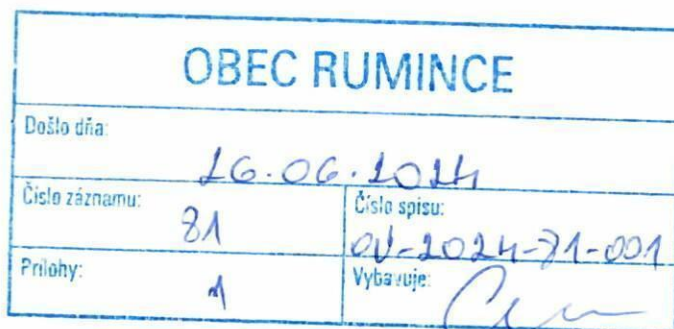 OBEC RUMINCE
Došlo dňa:
26.06.2024
Číslo záznamu:
81
Číslo spisu:
OU-2024-81-001
Prílohy:
1
Vybavuje: